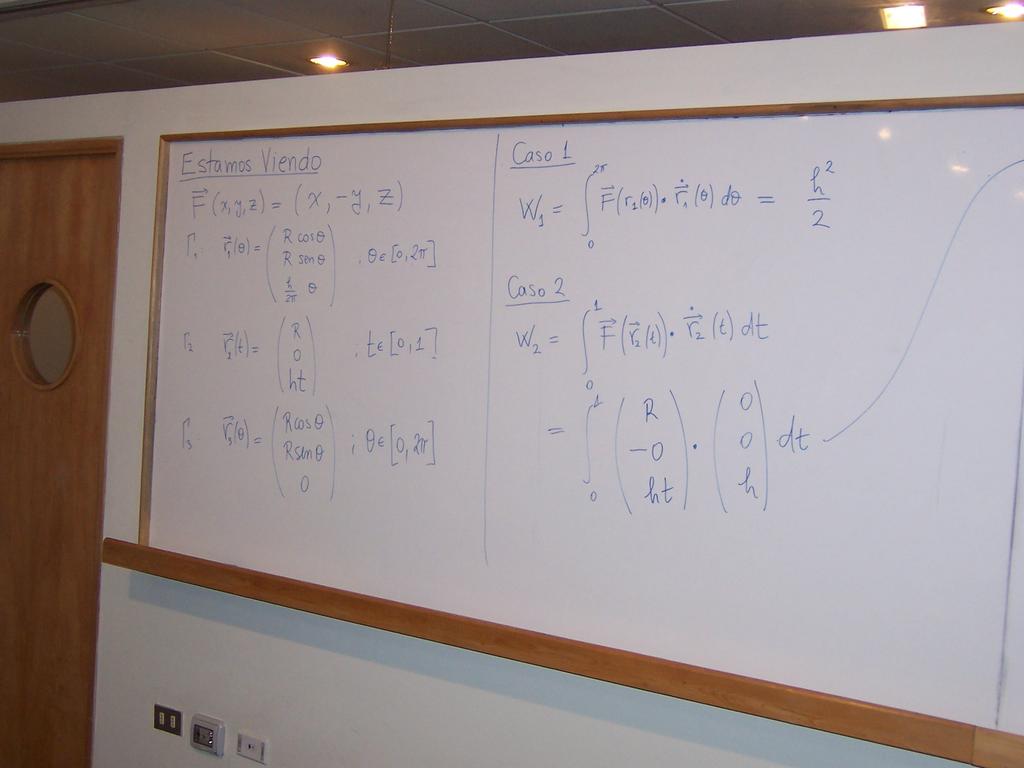 Estamos Viendo
F⃗(x,y,z) = (x, -y, z)
Γ₁: r⃗₁(θ) = (R cosθ
R senθ
h/2π θ) ; θ∈[0,2π]
Γ₂ r⃗₂(t) = (R
0
ht) ; t∈[0,1]
Γ₃: r⃗₃(θ) = (Rcosθ
Rsenθ
0) ; θ∈[0,2π]
Caso 1
W₁ = ∫₀^2π F⃗(r₁(θ))·ṙ⃗₁(θ) dθ = h²/2
Caso 2
W₂ = ∫₀¹ F⃗(r⃗₂(t))·ṙ⃗₂(t) dt
= ∫₀¹ (R
-0
ht) · (0
0
h) dt